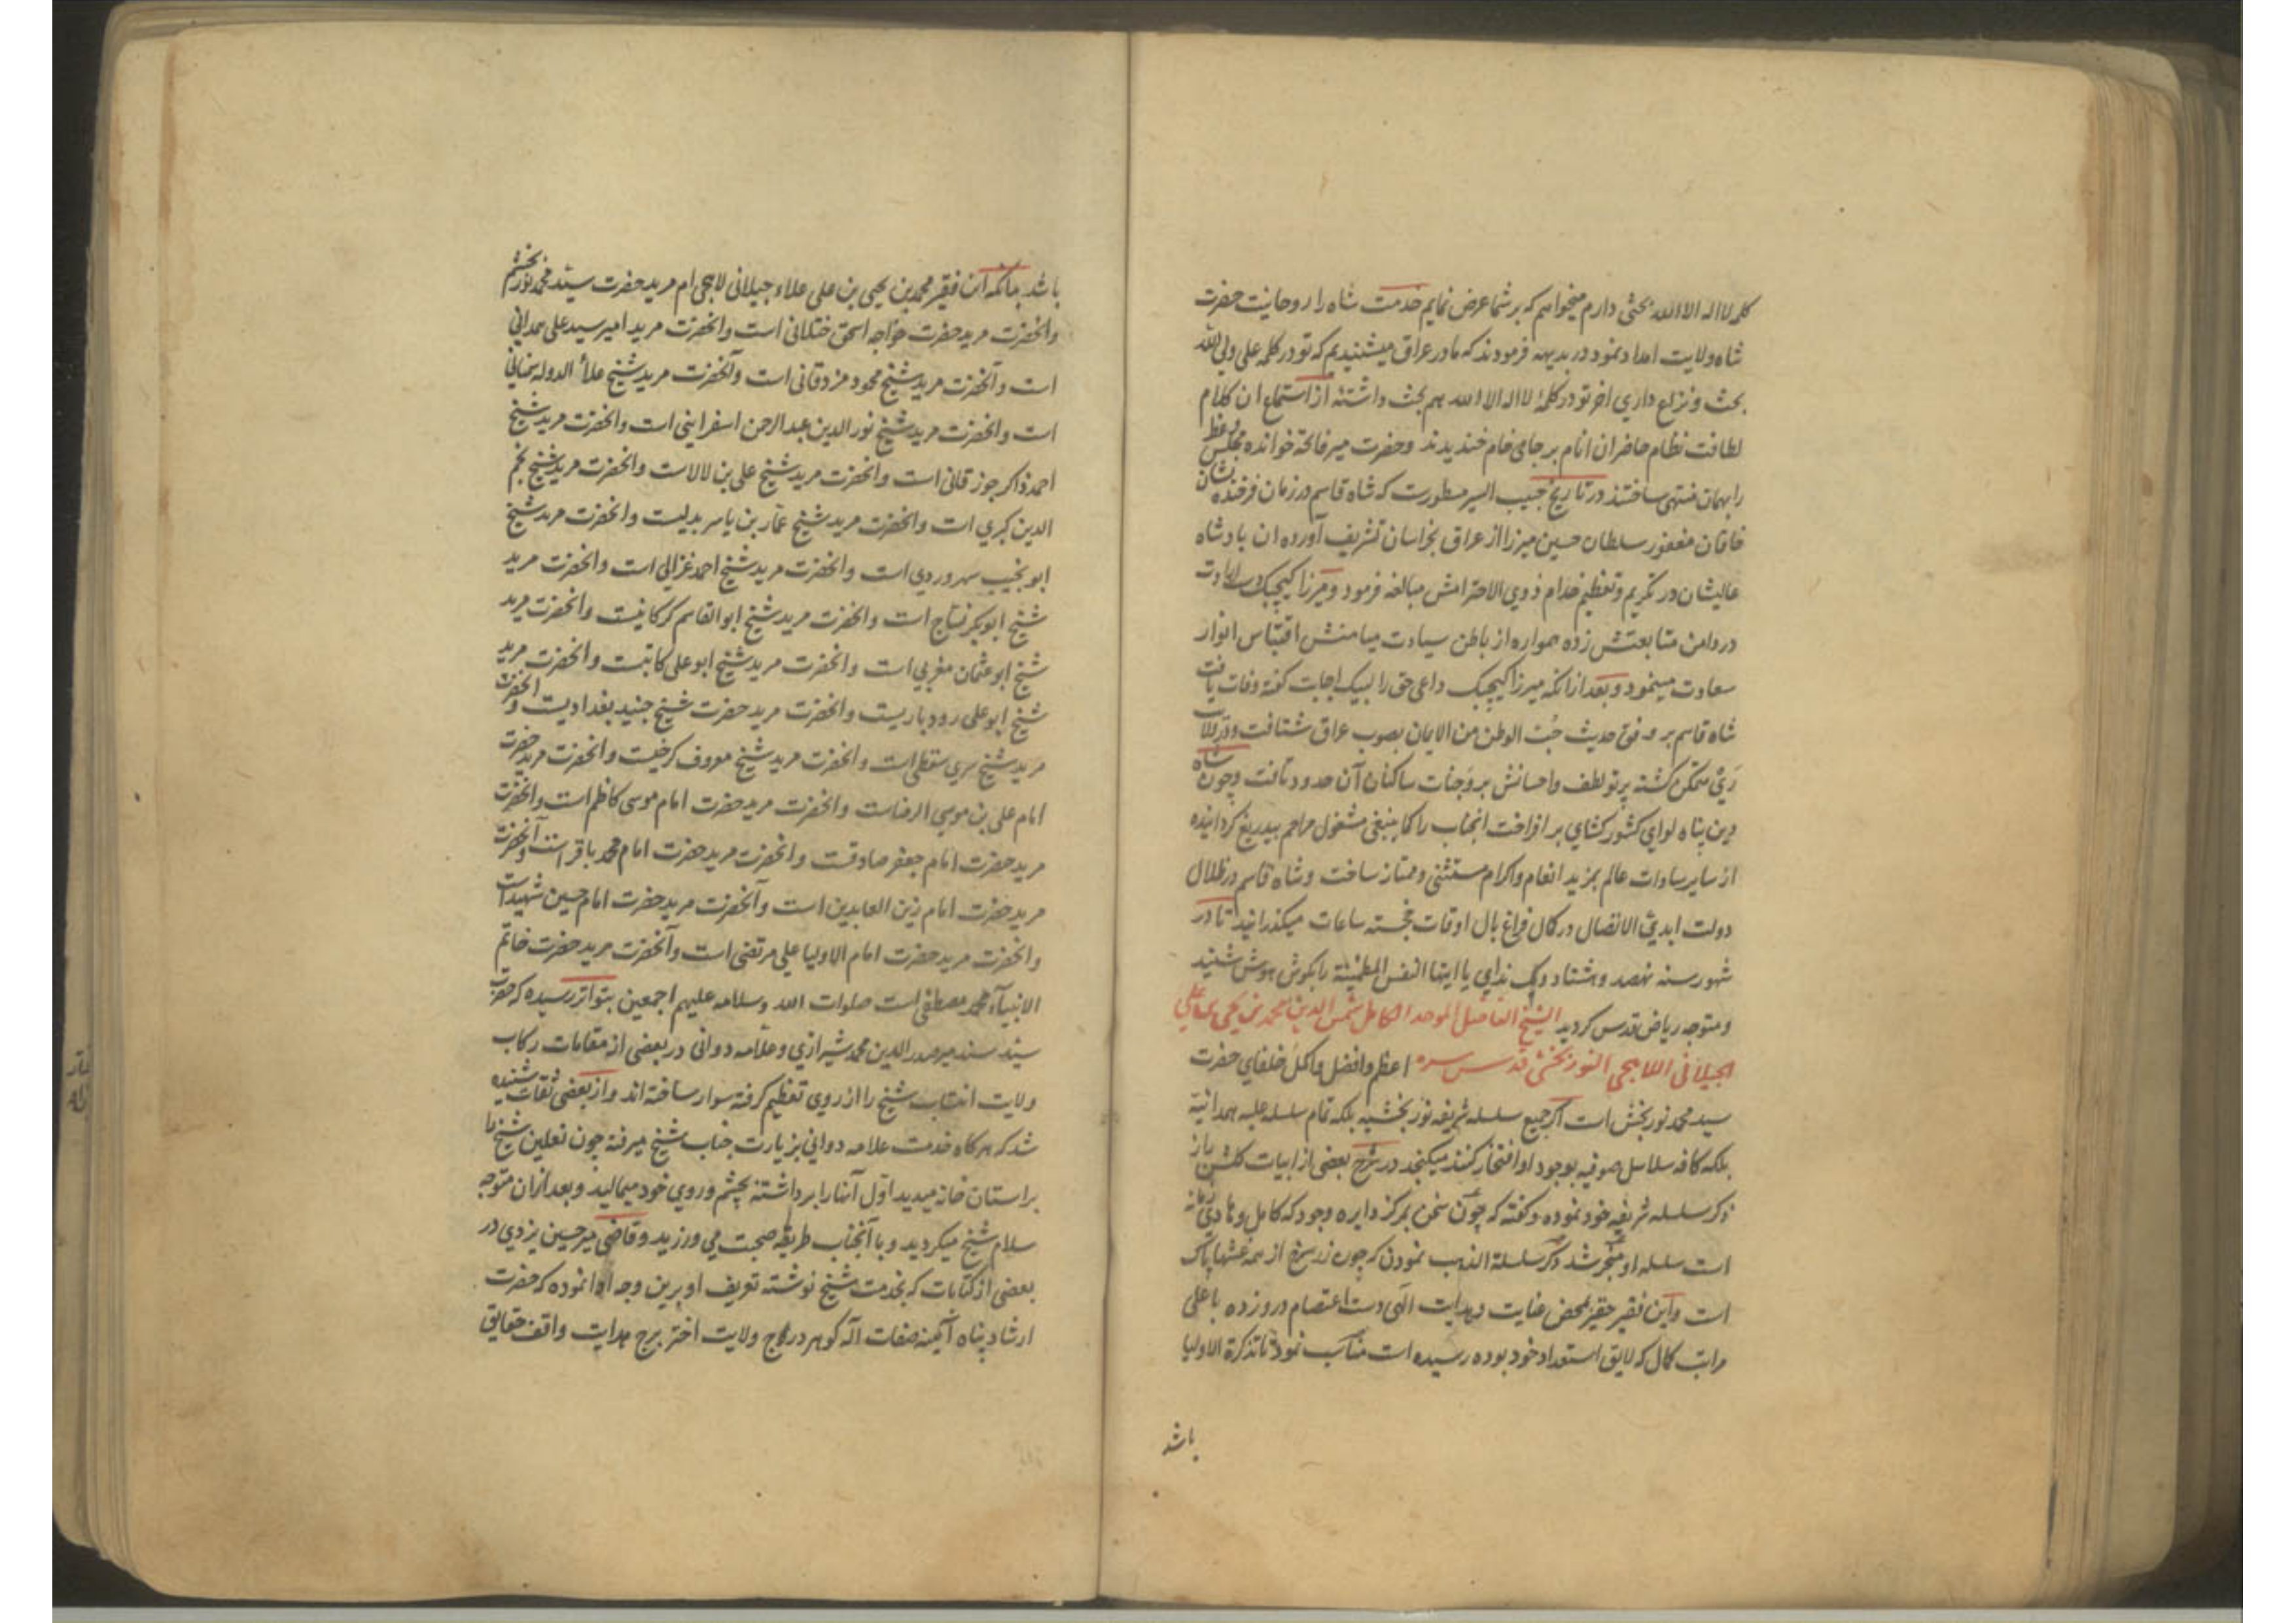 کلمه لااله الاالله بحثی دارم میخواهم که بر شما عرض نمایم خدمت شاه را روحانیت حضرت
شاه ولایت امداد نمود در بدیهه فرمودند که ما در عراق میشنیدیم که تو در کلمه علی ولی الله
بحث و نزاع داری آخر تو در کلمهٔ لااله الاالله هم بحث داشتهٔ از استماع ان کلام
لطافت نظام حاضران انام بر جامی خام خندیدند و حضرت میر فاتحه خوانده مجلس وعظ
را بهمان منتهی ساختند در تاریخ حبیب السیر مسطورست که شاه قاسم در زمان فرخنده نشان
خاقان مغفور سلطان حسین میرزا از عراق بخراسان تشریف آورده ان پادشاه
عالیشان در تکریم و تعظیم خدام ذوی الاحترامش مبالغه فرمود و میرزا کیچیک دست ارادت
در دامن متابعتش زده همواره از باطن سیادت میامنش اقتباس انوار
سعادت مینمود و بعد ازانکه میرزا کیچیک داعی حق را لبیک اجابت گفته وفات یافت
شاه قاسم بر وفق حدیث حُبّ الوطن من الایمان بصوب عراق شتافت و در ولایت
رَیْ متمکن گشته پرتو لطف و احسانش بر وجنات ساکنان آن حدود تافت و چون شاه
دین پناه لوای کشورکشای بر افراخت انجناب را کما ینبغی مشغول مراحم بیدریغ گردانیده
از سایر سادات عالم بمزید انعام و اکرام مستثنی و ممتاز ساخت و شاه قاسم در ظلال
دولت ابدی الاتصال در کمال فراغ بال اوقات خجسته ساعات میگذرانید تا در
شهور سنه نهصد و هشتاد و یک ندای یا ایتها النفس المطمئنة را بگوش هوش شنید
و متوجه ریاض قدس گردید الشیخ الفاضل الموحد الکامل شمس الدین محمد بن یحیی بن علی
الجیلانی اللاهجی النوربخشی قدس سره اعظم و افضل و اکمل خلفای حضرت
سید محمد نوربخش است اگر جمیع سلسله شریفه نوربخشیه بلکه تمام سلسله علیه همدانیه
بلکه کافه سلاسل صوفیه بوجود او افتخار کنند میگنجد در شرح بعضی از ابیات گلشن راز
ذکر سلسله شریفه خود نموده و گفته که چون سخن بمرکز دایره وجود که کامل و هادی زمانه
است سلسله او منجر شد ذکر سلسلة الذهب نمودن که چون زر سرخ از همه غشها پاک
است و این فقیر حقیر بمحض عنایت و هدایت الهی دست اعتصام درو زده باعلی
مراتب کمال که لایق استعداد خود بوده رسیده است مناسب نمود تا تذکرة الاولیا
باشد
باشد بدانکه این فقیر محمد بن یحیی بن علی علاء جیلانی لاهجی ام مرید حضرت سید محمد نوربخشم
وانحضرت مرید حضرت خواجه اسحق ختلانی است وانحضرت مرید امیر سید علی همدانی
است وآنحضرت مرید شیخ محمود مزدقانی است وآنحضرت مرید شیخ علاء الدوله سمنانی
است وانحضرت مرید شیخ نور الدین عبد الرحمن اسفراینی است وانحضرت مرید شیخ
احمد ذاکر جوزقانی است وانحضرت مرید شیخ علی بن لالاست وانحضرت مرید شیخ نجم
الدین کبری است وانحضرت مرید شیخ عمّار بن یاسر بدلیست وانحضرت مرید شیخ
ابو نجیب سهروردی است وانحضرت مرید شیخ احمد غزالی است وانحضرت مرید
شیخ ابو بکر نسّاج است وانحضرت مرید شیخ ابو القاسم کرکانیست وانحضرت مرید
شیخ ابو عثمان مغربی است وانحضرت مرید شیخ ابو علی کاتبست وانحضرت مرید
شیخ ابو علی رودباریست وانحضرت مرید حضرت شیخ جنید بغدادیست وانحضرت
مرید شیخ سری سقطی است وانحضرت مرید شیخ معروف کرخیست وانحضرت مرید حضرت
امام علی بن موسی الرضاست وانحضرت مرید حضرت امام موسی کاظم است وانحضرت
مرید حضرت امام جعفر صادقست وانحضرت مرید حضرت امام محمد باقر است وآنحضرت
مرید حضرت امام زین العابدین است وآنحضرت مرید حضرت امام حسین شهید است
وانحضرت مرید حضرت امام الاولیا علی مرتضی است وآنحضرت مرید حضرت خاتم
الانبیاء محمد مصطفی است صلوات الله وسلامه علیهم اجمعین بتواتر رسیده که حضرت
سید سند میر صدر الدین محمد شیرازی و علامه دوانی در بعضی از مقامات رکاب
ولایت انتساب شیخ را از روی تعظیم گرفته سوار ساخته اند و از بعضی ثقات شنیده
شد که هر گاه خدمت علامه دوانی بزیارت جناب شیخ میرفته چون نعلین شیخ را
بر استان خانه میدید اوّل آنها را برداشته بچشم و روی خود میمالید و بعد ازان متوجه
سلام شیخ میگردید و با آنجناب طریقه صحبت می ورزید و قاضی میر حسین یزدی در
بعضی از کتابات که بخدمت شیخ نوشته تعریف او برین وجه ادا نموده که حضرت
ارشاد پناه آیینه صفات اله گوهر درج ولایت اختر برج هدایت واقف حقایق